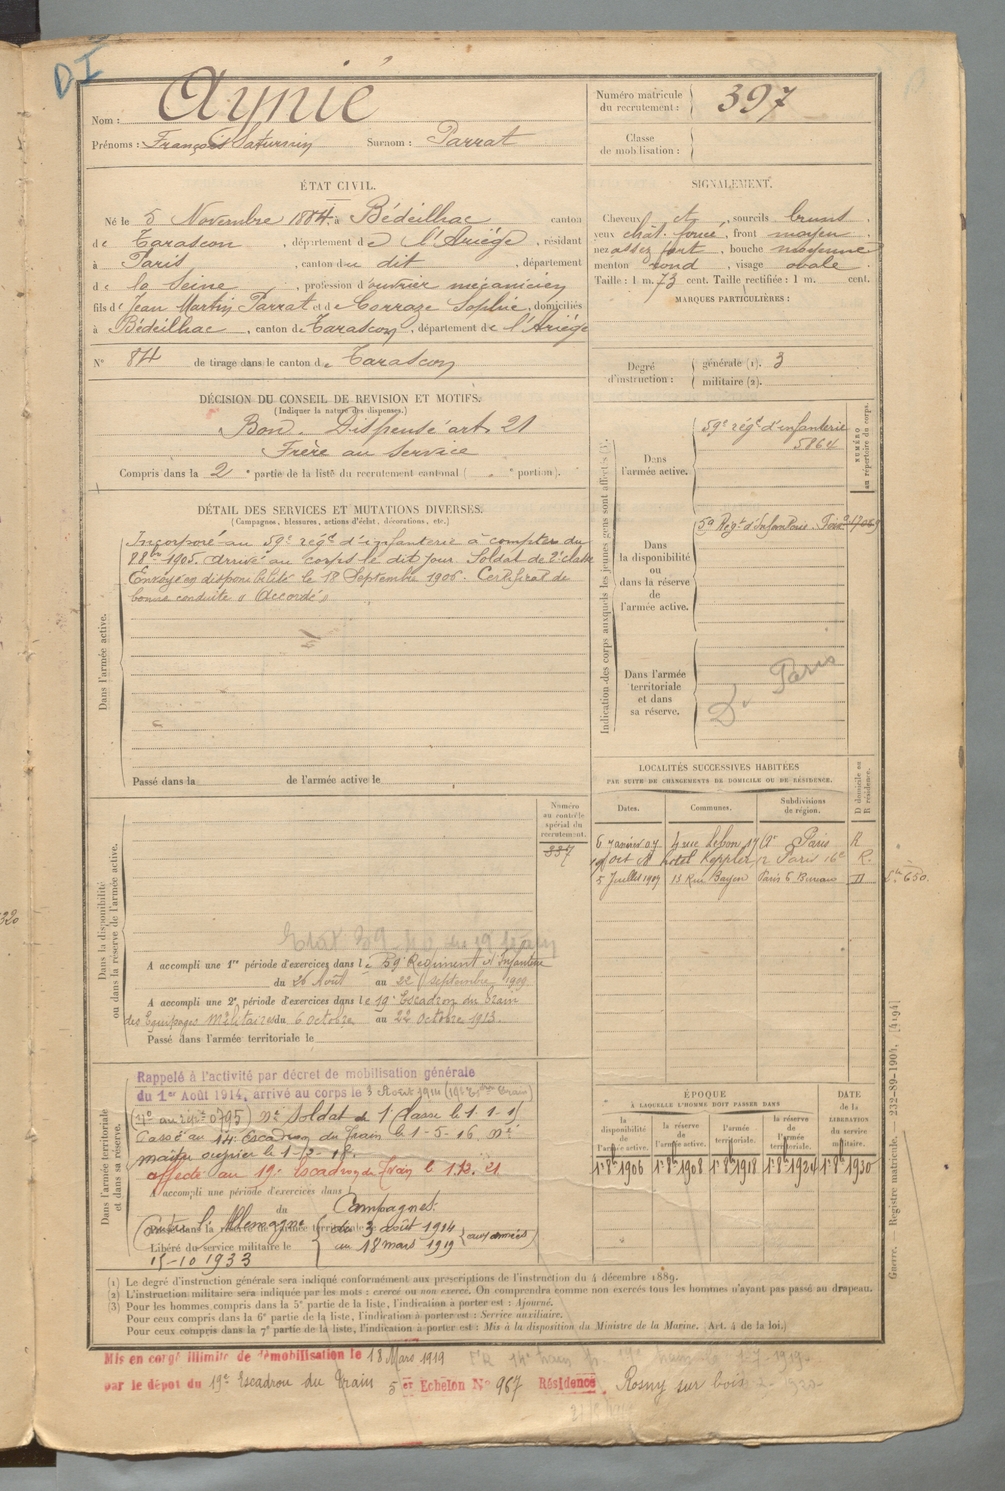 DI
Nom : Aynié
Prénoms : François Saturnin Surnom : Parrat
Numéro matricule du recrutement : 397
Classe de mobilisation :
ÉTAT CIVIL.
Né le 5 Novembre 1884 à Bédeilhac canton
de Tarascon, département de l'Ariège, résidant
à Paris, canton du dit, département
de la Seine, profession d'ouvrier mécanicien
fils de Jean Martin Parrat et de Corraze Sophie, domiciliés
à Bédeilhac, canton de Tarascon, département de l'Ariège
N° 84 de tirage dans le canton de Tarascon
SIGNALEMENT.
Cheveux et, sourcils bruns,
yeux chât. foncé, front moyen
nez assez fort, bouche moyenne
menton rond, visage ovale
Taille : 1 m. 73 cent. Taille rectifiée : 1 m. cent.
MARQUES PARTICULIÈRES :
Degré d'instruction : générale (1). 3
militaire (2).
DÉCISION DU CONSEIL DE REVISION ET MOTIFS.
(Indiquer la nature des dispenses.)
Bon. Dispensé art. 21
Frère au service
Compris dans la 2e partie de la liste du recrutement cantonal ( e portion).
DÉTAIL DES SERVICES ET MUTATIONS DIVERSES.
(Campagnes, blessures, actions d'éclat, décorations, etc.)
Dans l'armée active.
Incorporé au 59e régt d'infanterie à compter du
8bre 1905. Arrivé au corps le dit jour. Soldat de 2e classe
Envoyé en disponibilité le 18 Septembre 1906. Certificat de
bonne conduite « Accordé »
Passé dans la de l'armée active le
Indication des corps auxquels les jeunes gens sont affectés (3).
NUMÉRO au répertoire du corps.
Dans l'armée active.
59e régt d'infanterie
5864
Dans la disponibilité ou dans la réserve de l'armée active.
59 Régt d'Infanterie
Dans l'armée territoriale et dans sa réserve.
Paris
LOCALITÉS SUCCESSIVES HABITÉES
PAR SUITE DE CHANGEMENTS DE DOMICILE OU DE RÉSIDENCE.
Dates. Communes. Subdivisions de région. D domicile ou R résidence.
6 janvier 07 4 rue Lebon, 17e Ar Paris R
oct 08 hôtel Keppler Paris 16e R.
5 Juillet 1909 13 Rue Bayen Paris 6 Bureau D
Dans la disponibilité ou dans la réserve de l'armée active.
Numéro au contrôle spécial du recrutement.
337
A accompli une 1re période d'exercices dans le 59e Régiment d'Infanterie
du 26 Août au 22 septembre 1909
A accompli une 2e période d'exercices dans le 19e Escadron du Train
des Equipages Militaires du 6 octobre au 22 octobre 1913.
Passé dans l'armée territoriale le
Dans l'armée territoriale et dans sa réserve.
Rappelé à l'activité par décret de mobilisation générale
du 1er Août 1914, arrivé au corps le 3 Août 1914
Nt Soldat de 1e Classe le 1-1-15
Passé au 14e Escadron du Train le 1-5-16 Nt
maître ouvrier le
affecté au 19e Escadron du Train le
A accompli une période d'exercices dans
du
Campagnes:
Contre l'Allemagne du 3 août 1914
au 18 mars 1919 (aux armées)
Passé dans la réserve de l'armée territoriale
Libéré du service militaire le
15-10 1933
ÉPOQUE
À LAQUELLE L'HOMME DOIT PASSER DANS
la disponibilité de l'armée active. la réserve de l'armée active. l'armée territoriale. la réserve de l'armée territoriale. DATE de la LIBÉRATION du service militaire.
1er 8bre 1906 1er 8bre 1908 1er 8bre 1918 1er 8bre 1924 1er 8bre 1930
(1) Le degré d'instruction générale sera indiqué conformément aux prescriptions de l'instruction du 4 décembre 1889.
(2) L'instruction militaire sera indiquée par les mots : exercé ou non exercé. On comprendra comme non exercés tous les hommes n'ayant pas passé au drapeau.
(3) Pour les hommes compris dans la 5e partie de la liste, l'indication à porter est : Ajourné.
Pour ceux compris dans la 6e partie de la liste, l'indication à porter est : Service auxiliaire.
Pour ceux compris dans la 7e partie de la liste, l'indication à porter est : Mis à la disposition du Ministre de la Marine. Art. 4 de la loi.)
Guerre. — Registre matricule. — 232-89-1904. [4194]
Mis en congé illimité de démobilisation le 18 Mars 1919
par le dépôt du 19e Escadron du Train 5er Echelon N° 967 Résidence Rosny sur bois